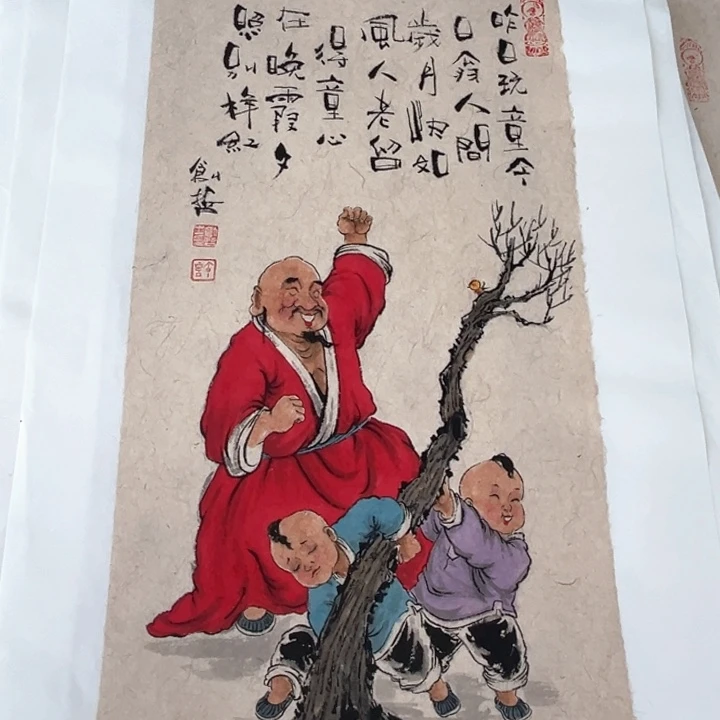 昨日玩童今
日翁人間
歲月快如
風人老留
得童心
在晚霞夕
照别样红